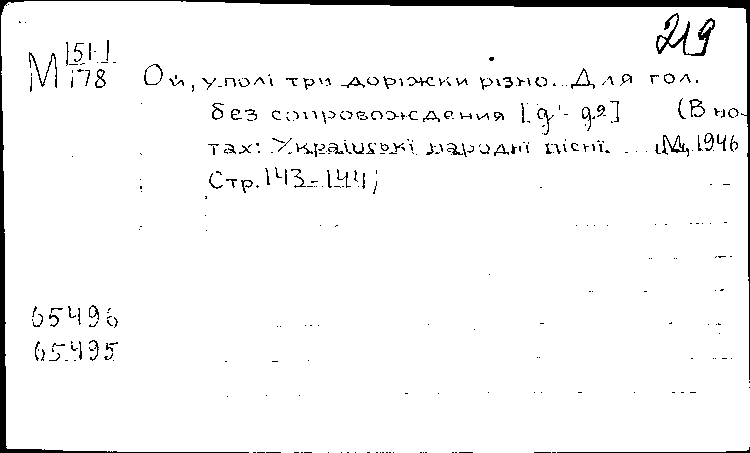 219
М 151-1
178
Ой, у полі три доріжки різно. Для гол.
без сопровождения [g'- g2] (В но-
тах: Українські народні пісні. М., 1946
Стр. 143-144)
65496
65495